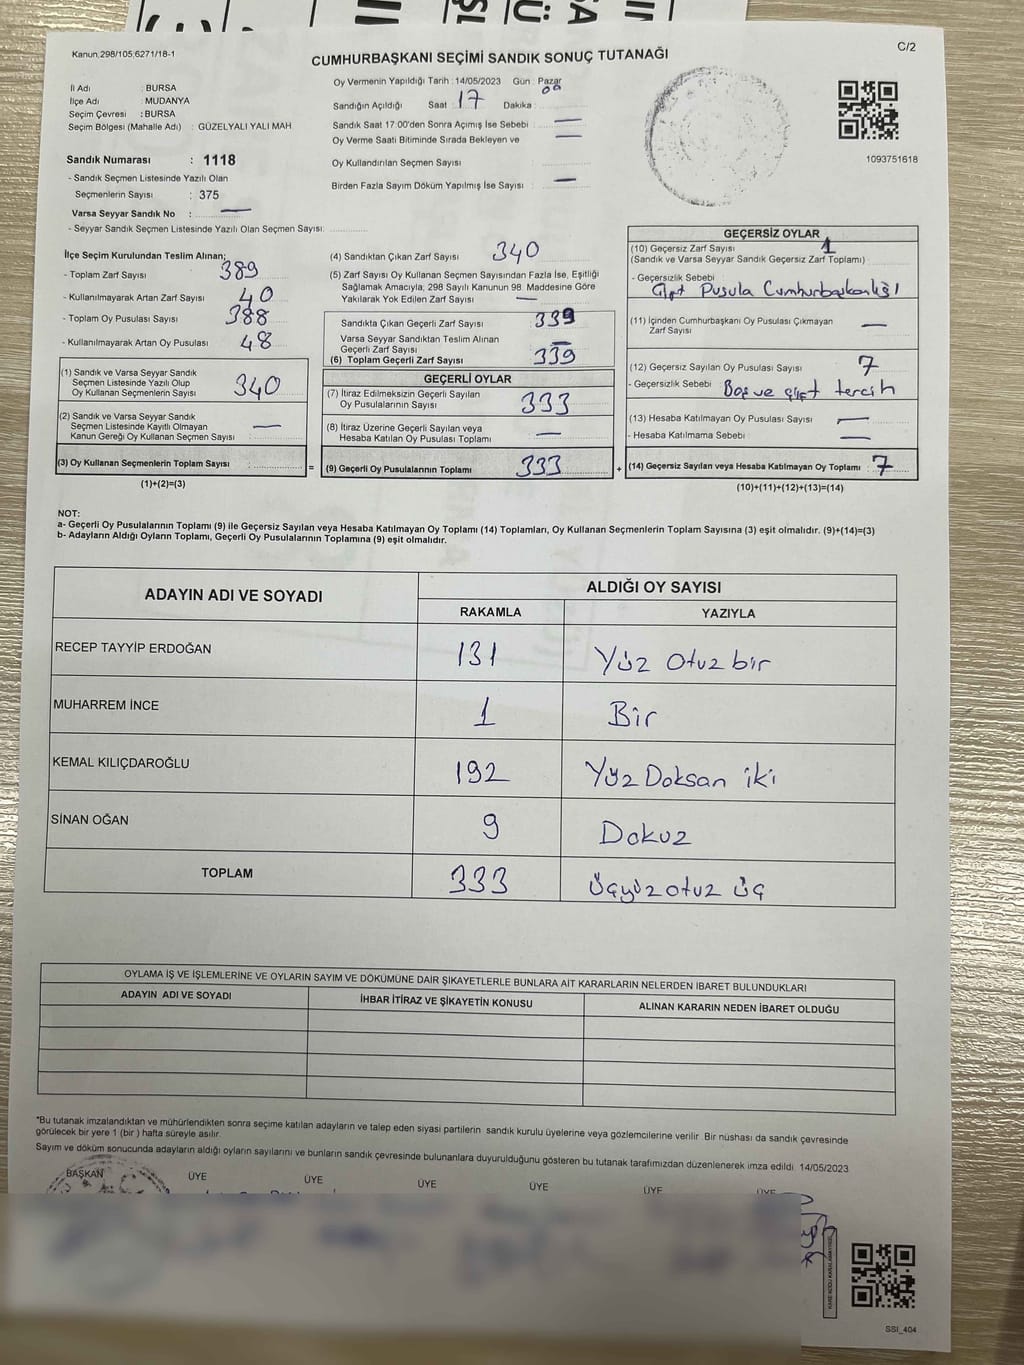 Kanun,298/105,6271/18-1
C/2
CUMHURBAŞKANI SEÇİMİ SANDIK SONUÇ TUTANAĞI
İl Adı : BURSA
İlçe Adı : MUDANYA
Seçim Çevresi : BURSA
Seçim Bölgesi (Mahalle Adı) : GÜZELYALI YALI MAH
Sandık Numarası : 1118
- Sandık Seçmen Listesinde Yazılı Olan
Seçmenlerin Sayısı : 375
Varsa Seyyar Sandık No : —
- Seyyar Sandık Seçmen Listesinde Yazılı Olan Seçmen Sayısı:
Oy Vermenin Yapıldığı Tarih : 14/05/2023 Gün : Pazar
Sandığın Açıldığı Saat : 17 Dakika : 00
Sandık Saat 17:00'den Sonra Açımış İse Sebebi : —
Oy Verme Saati Bitiminde Sırada Bekleyen ve —
Oy Kullandırılan Seçmen Sayısı :
Birden Fazla Sayım Döküm Yapılmış İse Sayısı : —
1093751618
İlçe Seçim Kurulundan Teslim Alınan;
- Toplam Zarf Sayısı : 389
- Kullanılmayarak Artan Zarf Sayısı : 40
- Toplam Oy Pusulası Sayısı : 388
- Kullanılmayarak Artan Oy Pusulası : 48
(1) Sandık ve Varsa Seyyar Sandık
Seçmen Listesinde Yazılı Olup
Oy Kullanan Seçmenlerin Sayısı : 340
(2) Sandık ve Varsa Seyyar Sandık
Seçmen Listesinde Kayıtlı Olmayan
Kanun Gereği Oy Kullanan Seçmen Sayısı : —
(3) Oy Kullanan Seçmenlerin Toplam Sayısı :
(1)+(2)=(3)
(4) Sandıktan Çıkan Zarf Sayısı : 340
(5) Zarf Sayısı Oy Kullanan Seçmen Sayısından Fazla İse, Eşitliği
Sağlamak Amacıyla, 298 Sayılı Kanunun 98. Maddesine Göre
Yakılarak Yok Edilen Zarf Sayısı : —
Sandıkta Çıkan Geçerli Zarf Sayısı : 339
Varsa Seyyar Sandıktan Teslim Alınan
Geçerli Zarf Sayısı : —
(6) Toplam Geçerli Zarf Sayısı : 339
GEÇERLİ OYLAR
(7) İtiraz Edilmeksizin Geçerli Sayılan
Oy Pusulalarının Sayısı : 333
(8) İtiraz Üzerine Geçerli Sayılan veya
Hesaba Katılan Oy Pusulası Toplamı : —
= (9) Geçerli Oy Pusulalarının Toplamı : 333
GEÇERSİZ OYLAR
(10) Geçersiz Zarf Sayısı : 1
(Sandık ve Varsa Seyyar Sandık Geçersiz Zarf Toplamı)
- Geçersizlik Sebebi :
Çift Pusula Cumhurbaşkanlığı
(11) İçinden Cumhurbaşkanı Oy Pusulası Çıkmayan
Zarf Sayısı : —
(12) Geçersiz Sayılan Oy Pusulası Sayısı : 7
- Geçersizlik Sebebi : Boş ve çift tercih
(13) Hesaba Katılmayan Oy Pusulası Sayısı : —
- Hesaba Katılmama Sebebi : —
+ (14) Geçersiz Sayılan veya Hesaba Katılmayan Oy Toplamı : 7
(10)+(11)+(12)+(13)=(14)
NOT:
a- Geçerli Oy Pusulalarının Toplamı (9) ile Geçersiz Sayılan veya Hesaba Katılmayan Oy Toplamı (14) Toplamları, Oy Kullanan Seçmenlerin Toplam Sayısına (3) eşit olmalıdır. (9)+(14)=(3)
b- Adayların Aldığı Oyların Toplamı, Geçerli Oy Pusulalarının Toplamına (9) eşit olmalıdır.
ADAYIN ADI VE SOYADI
ALDIĞI OY SAYISI
RAKAMLA YAZIYLA
RECEP TAYYİP ERDOĞAN 131 Yüz Otuz bir
MUHARREM İNCE 1 Bir
KEMAL KILIÇDAROĞLU 192 Yüz Doksan iki
SİNAN OĞAN 9 Dokuz
TOPLAM 333 Üçyüz otuz üç
OYLAMA İŞ VE İŞLEMLERİNE VE OYLARIN SAYIM VE DÖKÜMÜNE DAİR ŞİKAYETLERLE BUNLARA AİT KARARLARIN NELERDEN İBARET BULUNDUKLARI
ADAYIN ADI VE SOYADI İHBAR İTİRAZ VE ŞİKAYETİN KONUSU ALINAN KARARIN NEDEN İBARET OLDUĞU
*Bu tutanak imzalandıktan ve mühürlendikten sonra seçime katılan adayların ve talep eden siyasi partilerin sandık kurulu üyelerine veya gözlemcilerine verilir. Bir nüshası da sandık çevresinde
görülecek bir yere 1 (bir ) hafta süreyle asılır.
Sayım ve döküm sonucunda adayların aldığı oyların sayılarını ve bunların sandık çevresinde bulunanlara duyurulduğunu gösteren bu tutanak tarafımızdan düzenlenerek imza edildi. 14/05/2023
BAŞKAN ÜYE ÜYE ÜYE ÜYE ÜYE ÜYE
SSI_404